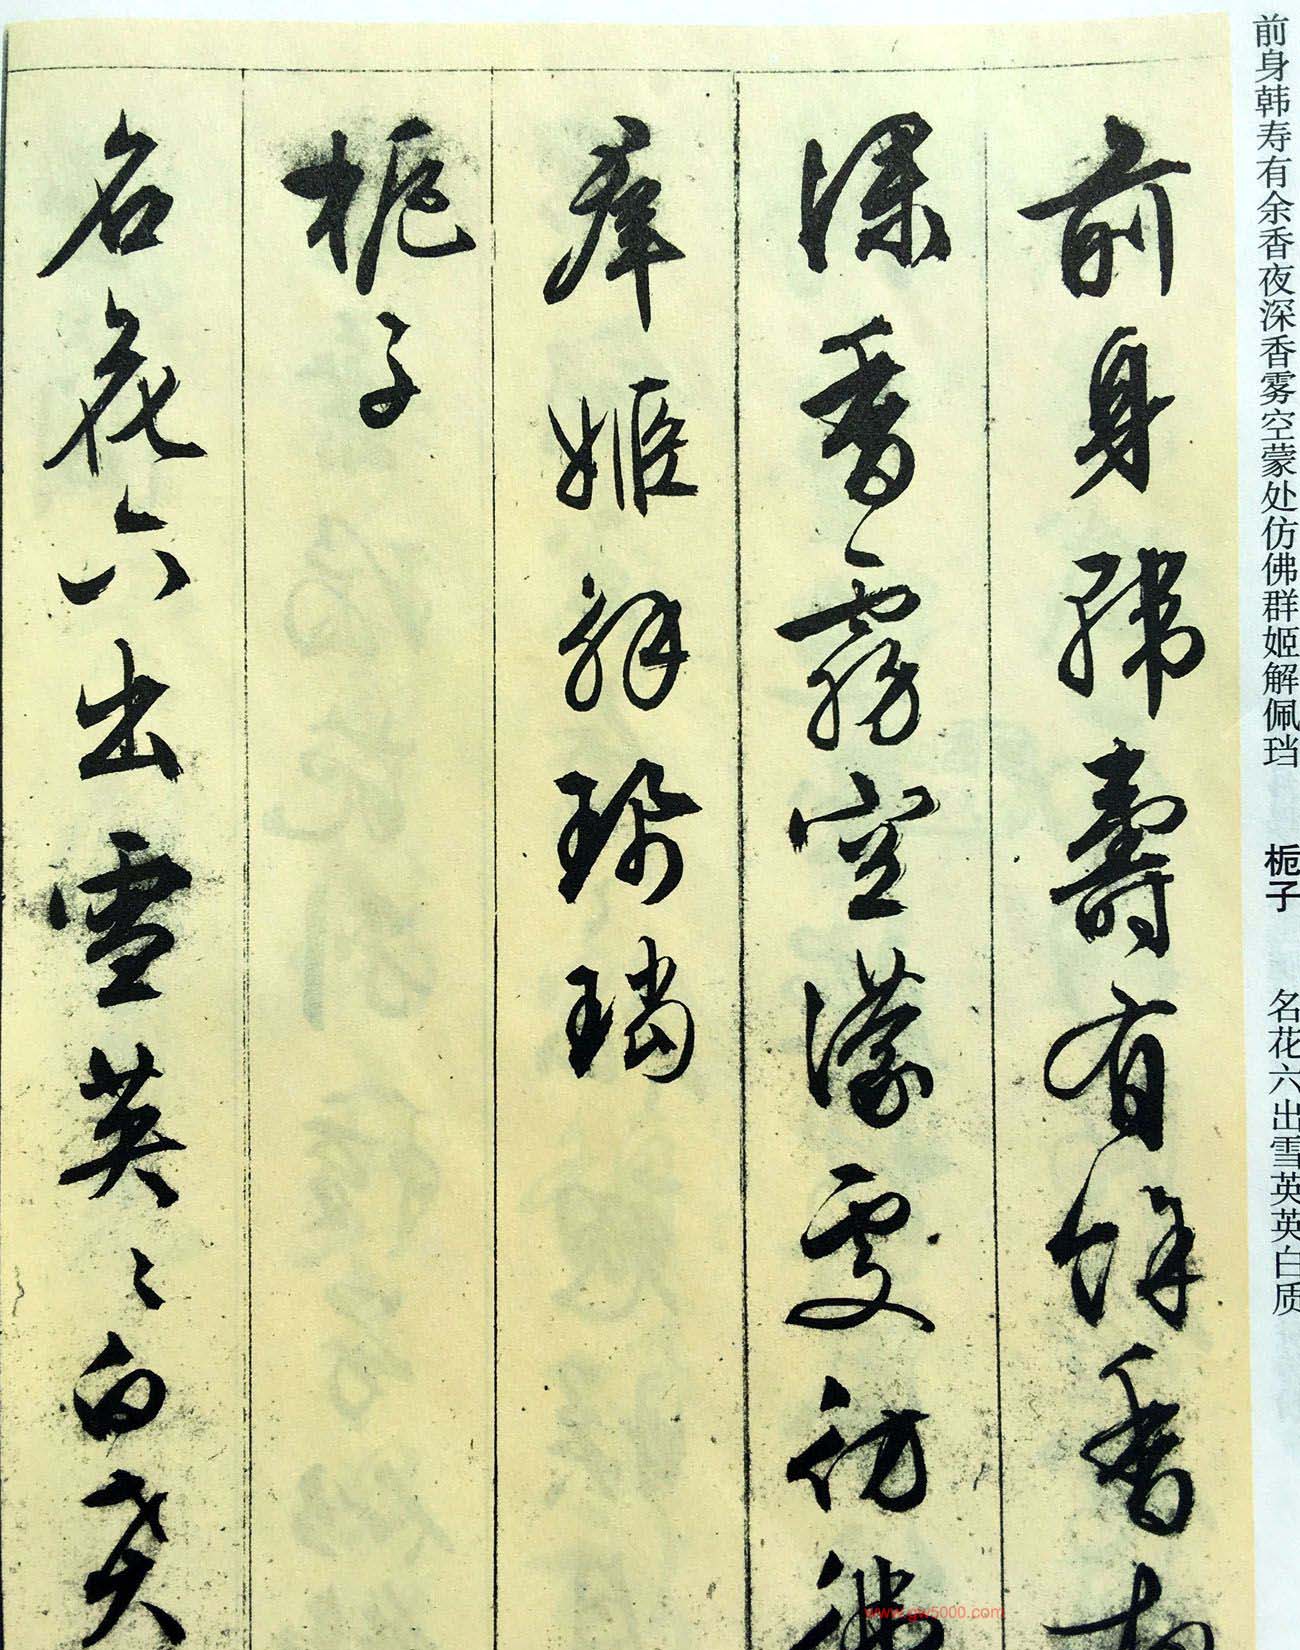 前身韩寿有余香夜深香雾空蒙处仿佛群姬解佩珰 栀子 名花六出雪英英白质
前身韓壽有餘香夜
深香霧空濛處彷彿
群姬解珮璫
栀子
名花六出雪英〻白質
www.gw5000.com